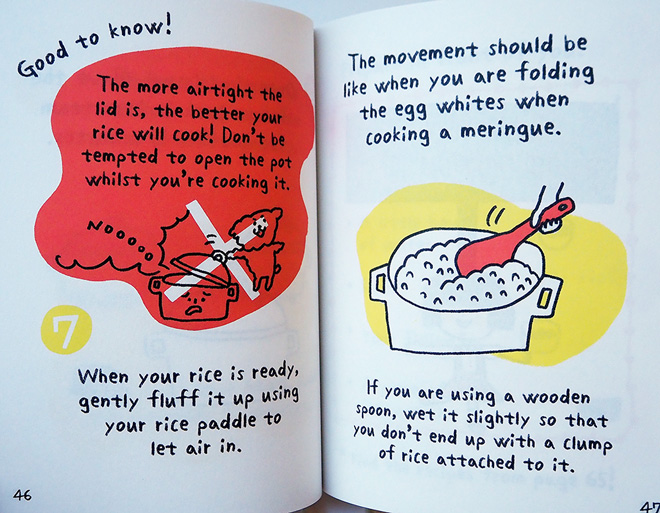 Good to know!
The more airtight the
lid is, the better your
rice will cook! Don't be
tempted to open the pot
whilst you're cooking it.
NOOOOO
7
When your rice is ready,
gently fluff it up using
your rice paddle to
let air in.
46
The movement should be
like when you are folding
the egg whites when
cooking a meringue.
If you are using a wooden
spoon, wet it slightly so that
you don't end up with a clump
of rice attached to it.
47